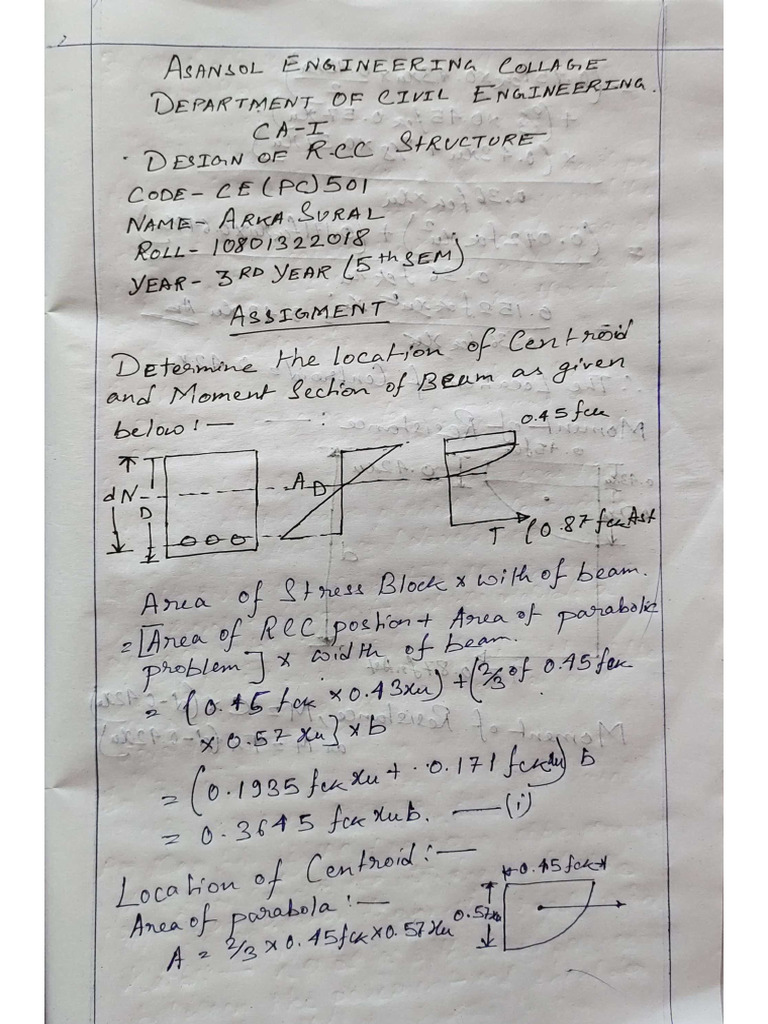 ASANSOL ENGINEERING COLLAGE
DEPARTMENT OF CIVIL ENGINEERING.
CA-I
DESIGN OF R.C.C STRUCTURE
CODE- CE(PC)501
NAME- ARKA SURAL
ROLL- 10801322018
YEAR- 3RD YEAR (5th SEM)
ASSIGMENT
Determine the location of Centroid
and Moment Section of Beam as given
below:—
0.45 fck
d N A D
D
T (0.87 fck Ast
Area of Stress Block × with of beam.
= [Area of RCC postion + Area of parabolic
problem] × width of beam.
= (0.45 fck × 0.43xu) + (2/3 of 0.45 fck
× 0.57 xu] × b
= (0.1935 fck xu + 0.171 fck xu) b
= 0.3645 fck xu b. — (i)
Location of Centroid:—
0.45 fck
Area of parabola:—
0.57xu
A = 2/3 × 0.45 fck × 0.57 xu